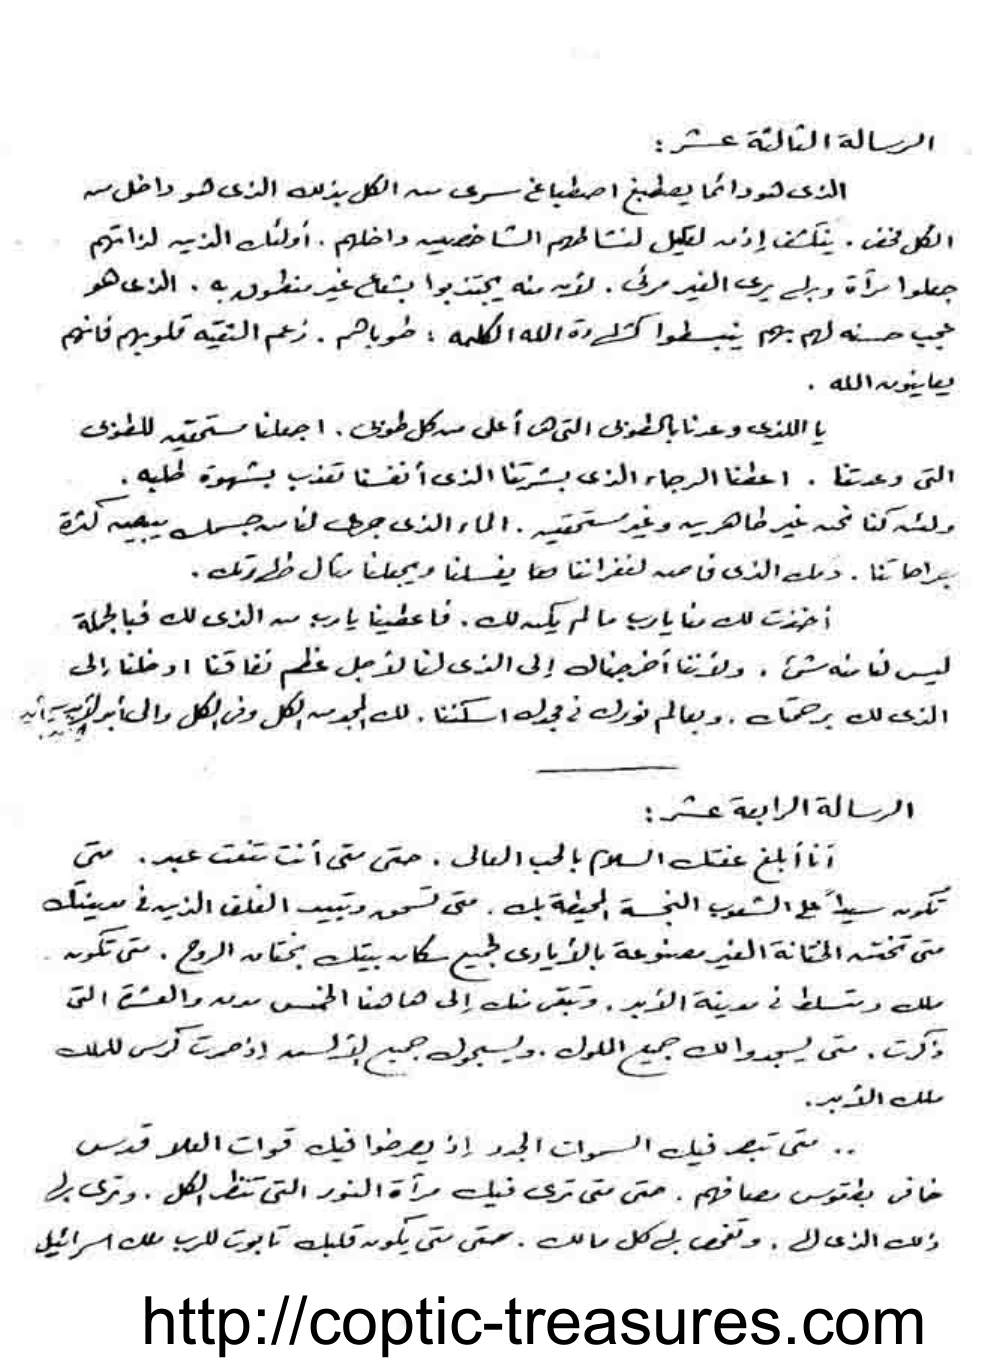 الرسالة الثالثة عشر :
الذى هو دائما يصطبغ اصطباغ سرى من الكل بذلك الذى هو داخل من
الكل مخفى . ينكشف إذن لنشاطهم الشاخصين داخلهم . أولئك الذين لذاتهم
جعلوا مرآة وبك يرى الغير مرئى . لأن منه يجتذبوا بشعاع غير منطوق به . الذى هو
عجب حسنه لهم بهم ينبسطوا كشهادة الله الكلمه : طوباهم . زعم النقيه قلوبهم فانهم
يعاينون الله .
يا اللذى وعدنا بالطوبى التى هى أعلى من كل طوبى . اجعلنا مستحقين للطوبى
التى وعدتنا . اعطنا الرجاء الذى بشرتنا الذى أنفسنا تعذب بشهوة طلبه .
ولئن كنا نحن غير طاهرين وغير مستحقين . الماء الذى جرى لنا من جسمك يبيد كثرة
جراحاتنا . دمك الذى فاض لغفراننا معا يغسلنا ويجعلنا مثال طهارتك .
أخذت لك منا يارب ما لم يكن لك . فاعطينا يارب من الذى لك فبالجملة
ليس لنا منه شئ . ولأننا أخرجناك إلى الذى لنا لأجل عظم نفاقنا ادخلنا إلى
الذى لك برحمتك . وبعالم نورك فى مجدك اسكننا . لك المجد من الكل وفى الكل والى أبد الآبدين آمين
الرسالة الرابعة عشر :
أنا أبلغ عفتك السلام بالحب العالى . حتى متى أنت تنعت عبد . متى
تكون سيداً على الشعوب النجسة المحيطة بك . متى تسحق وتبيد الغلف الذين فى مدينتك
متى تختن الختانة الغير مصنوعة بالأيادى لجميع سكان بيتك بختان الروح . متى تكون
ملك ومتسلط فى مدينة الأبد . وتبقى منك إلى هاهنا الخمس مدن والعشرة التى
ذكرت . متى يسجدوا لك جميع الملوك . ويسبحوك جميع الألسن إذ صرت كرسى للملك
ملك الأبد .
.. متى تبصر فيك السموات الجدد إذ يصرخوا فيك قوات العلا قدس
خافى بطقوس مصافهم . حتى متى ترى فيك مرآة النور التى تنظر الكل . وترى بك
ذلك الذى لك . وتفحص بك كل مالك . حتى متى يكون قلبك تابوت للرب ملك اسرائيل
http://coptic-treasures.com